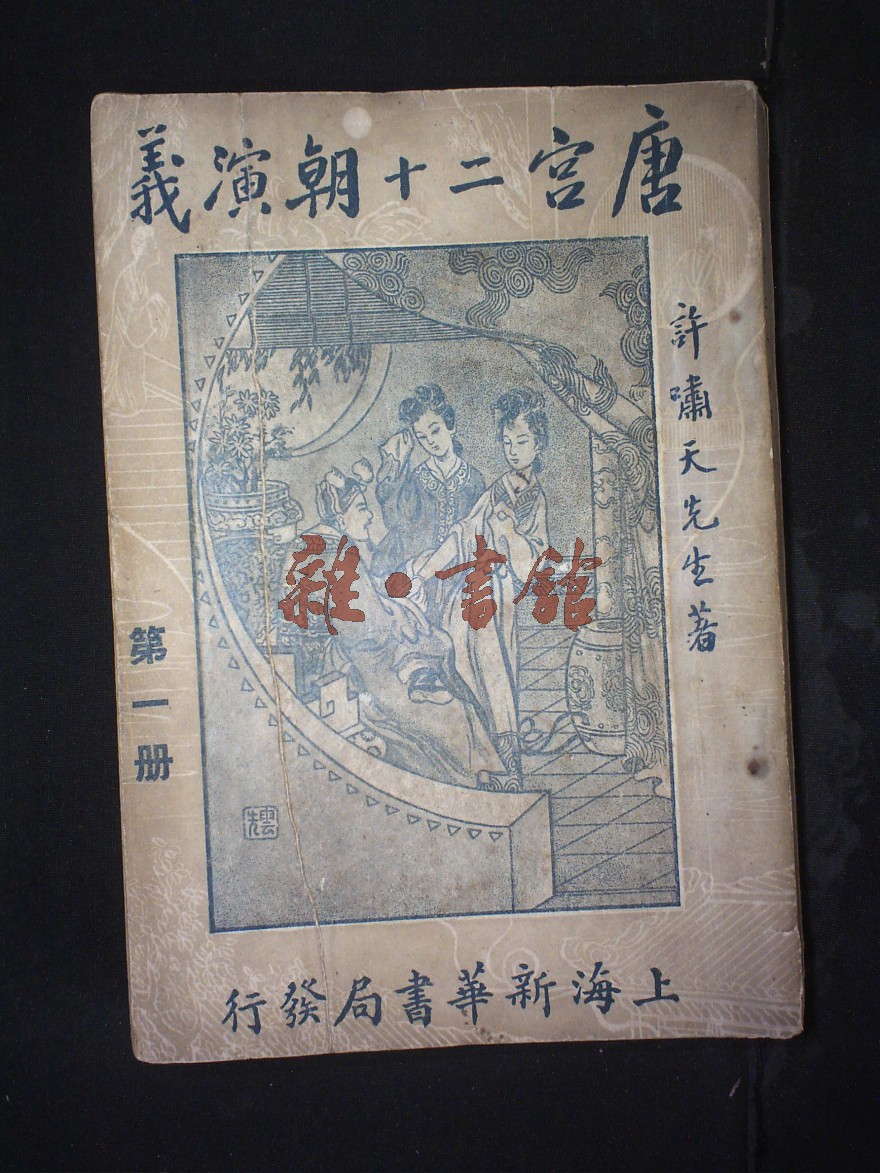 唐宮二十朝演義
許嘯天先生著
第一册
雜·書館
上海新華書局發行